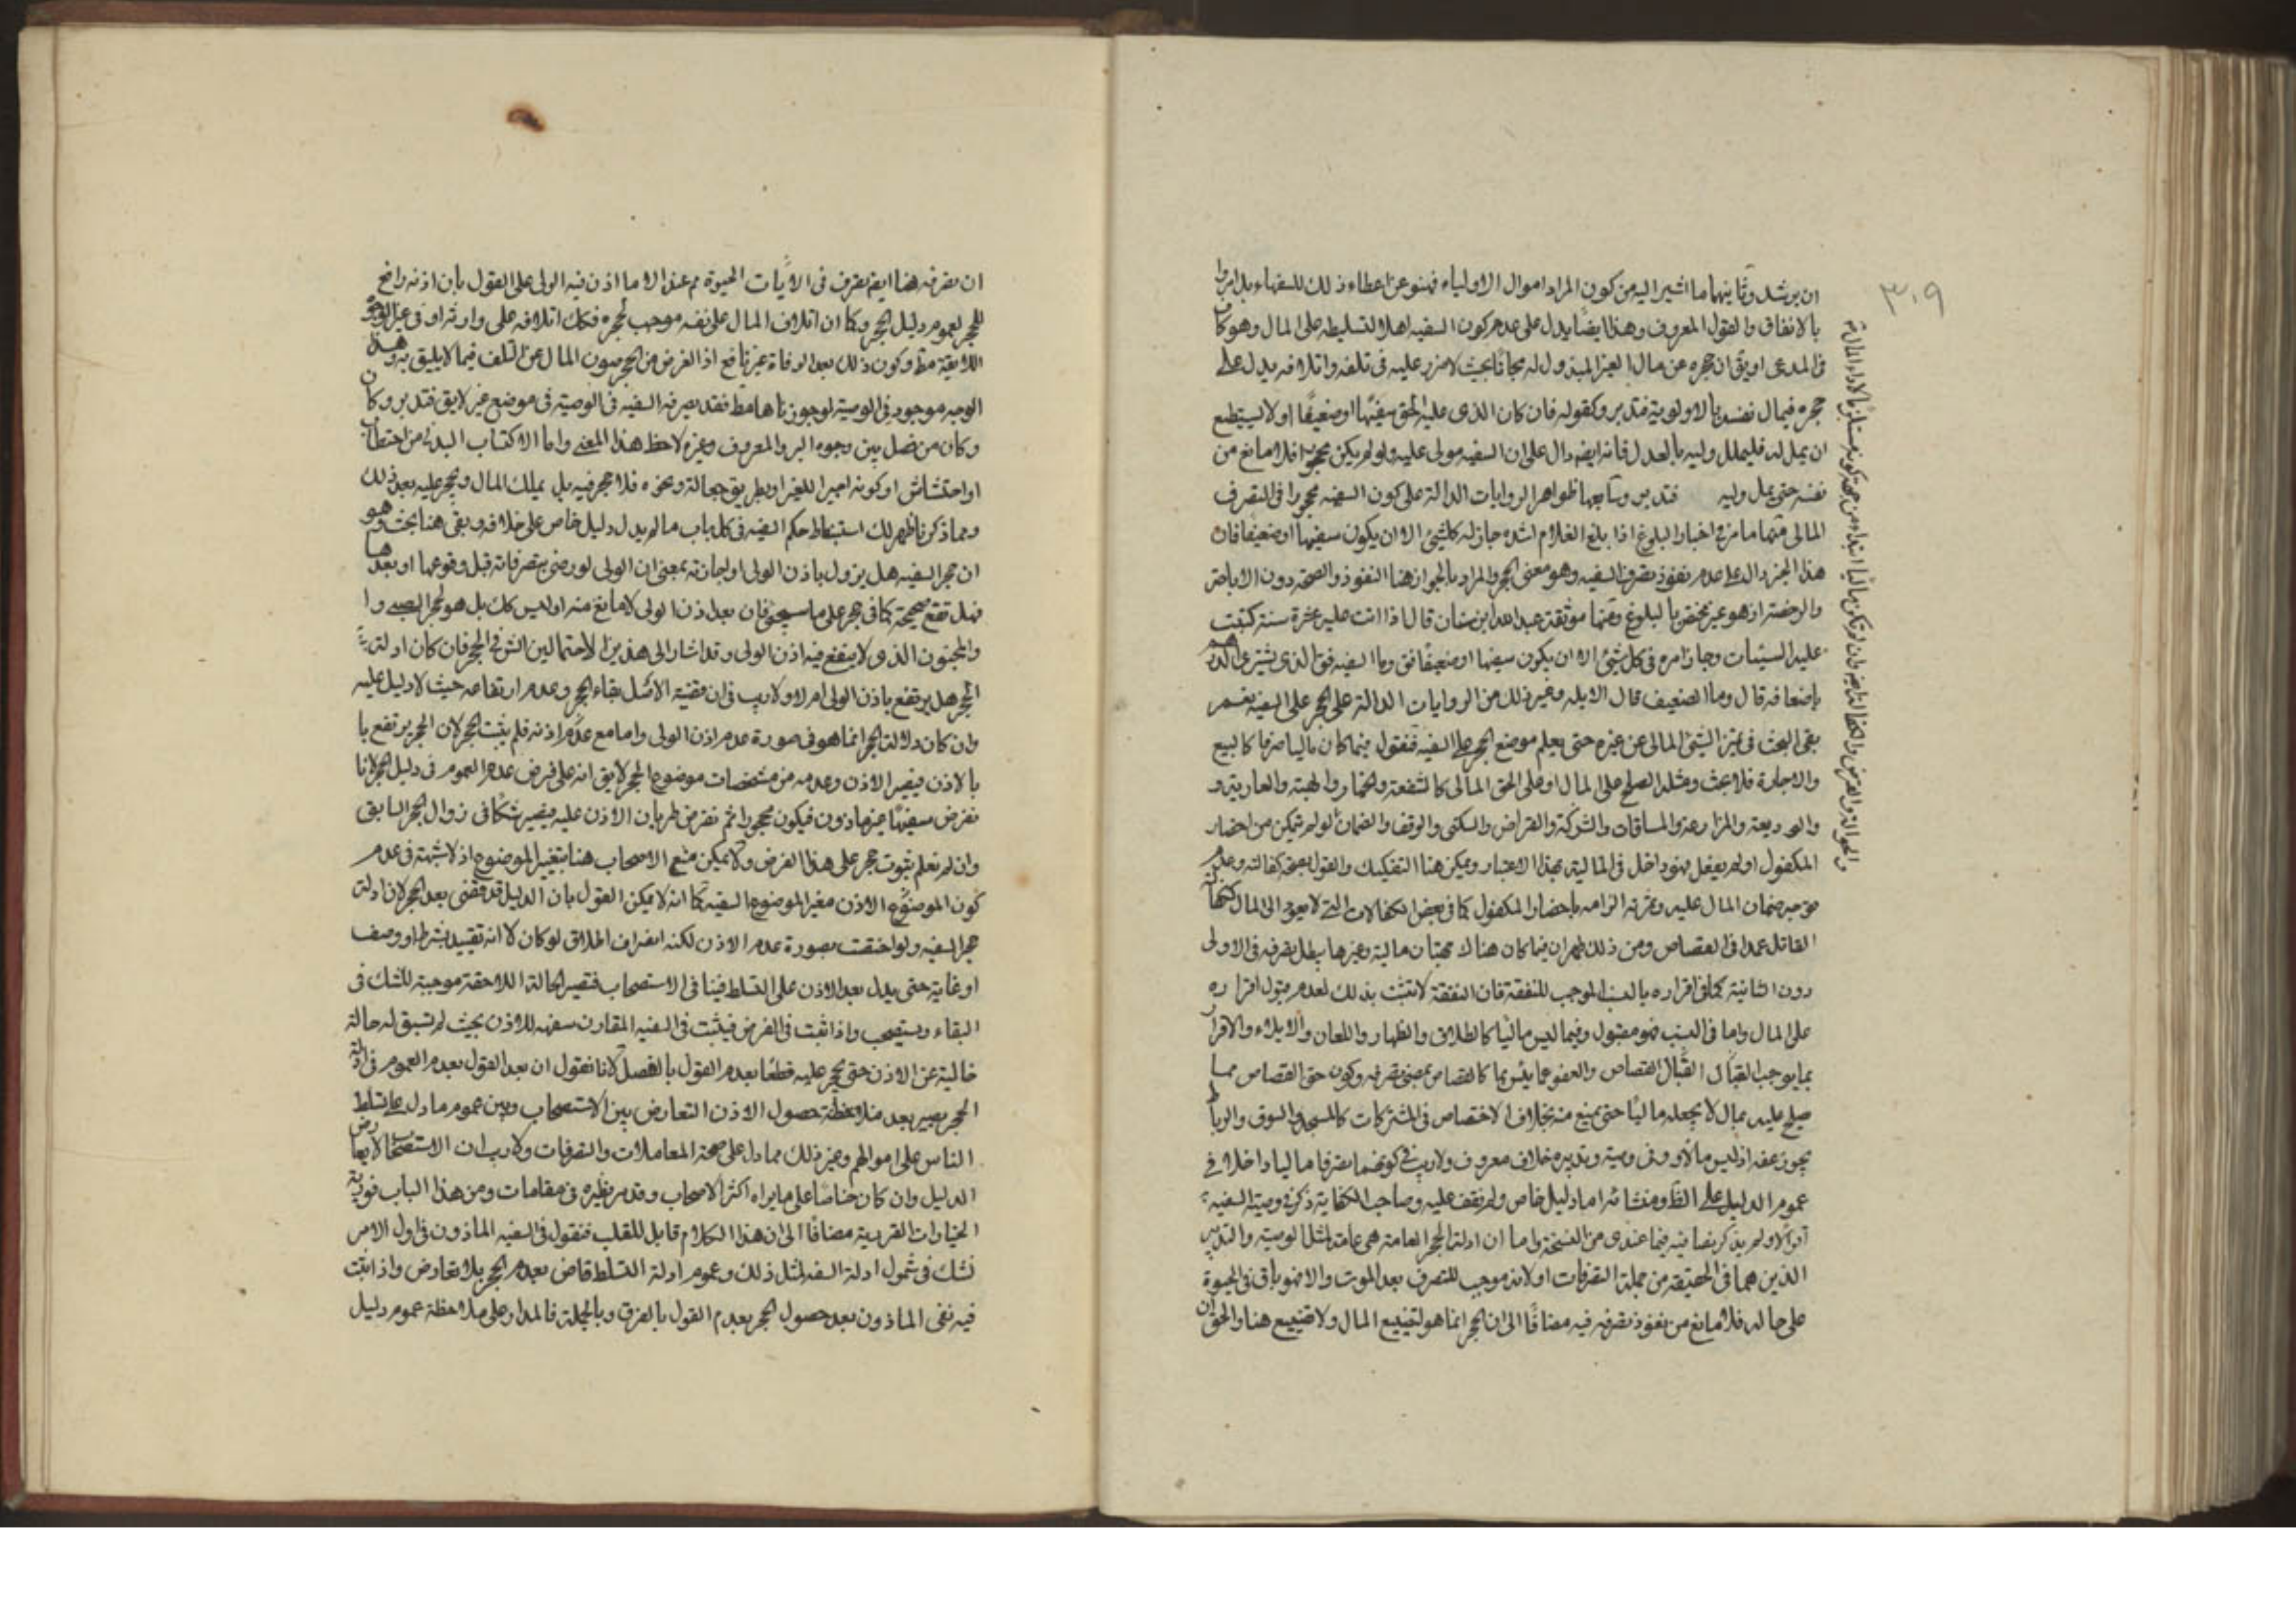 ٣٠٩
ان يرشد وثانيهما ما اشير اليه من كون المراد اموال الاولياء فمنع عن اعطاء ذلك للسفهاء بل امروا
بالانفاق والقول المعروف وهذا ايضا يدل على عدم كون السفيه اهلا لتسليطه على المال وهو كاف
فى المدعى او يق ان حجره عن مال الغير المبذول له مجانا بحيث لا ضرر عليه فى تلفه واتلافه يدل على
حجره فيمال نفسه بالاولوية فتدبر وكقوله فان كان الذى عليه الحق سفيها او ضعيفا او لا يستطيع
ان يمل له فليملل وليه بالعدل فانه ايضه دال على ان السفيه مولى عليه ولو لم يكن محجورا فلا مانع من
نفسه حتى يمل وليه فتدبر وسابعها ظواهر الروايات الدالة على كون السفيه محجورا فى التصرف
المالى منها ما مر فى اخبار البلوغ اذا بلغ الغلام اشده جاز له كلشيئ الا ان يكون سفيها او ضعيفا فان
هذا الخبر دال على عدم نفوذ تصرف السفيه وهو معنى الحجر والمراد بالجواز هنا النفوذ والصحة دون الاباحة
والرخصة اذ هو غير مختص بالبلوغ ومنها موثقة عبد الله ابن سنان قال اذا اتت عليه عشرة سنة كتبت
عليه السيئات وجاز امره فى كل شيئ الا ان يكون سفيها او ضعيفا فق وما السفيه فق الذى يشترى الدرهم
باضعافه قال وما الضعيف قال الابله وغير ذلك من الروايات الدالة على الحجر على السفيه نعم
بقى البحث فى تميز الشيئ المالى عن غيره حتى يعلم موضع الحجر على السفيه فنقول فيما كان ماليا صرفا كالبيع
والاجارة فلا بحث ومثله الصلح على المال او على الحق المالى كالشفعة والخيار والهبة والعارية و
والوديعة والمزارعة والمساقات والشركة والقراض والسكنى والوقف والضمان لو لم يتمكن من احضار
المكفول او لم يفعل فهو داخل فى المالية بهذا الاعتبار ويمكن هنا التفكيك والقول بصحة كفالته وعدم
توجه ضمان المال عليه وثمرته الزامه باحضار المكفول كما فى بعض الكفالات التى لا يعود الى المال ككفالة
القاتل عمدا فى القصاص ومن ذلك ظهر ان فيما كان هناك جهتان مالية وغيرها يبطل تصرفه فى الاولى
دون الثانية كما فى اقراره بالنسب الموجب للنفقة فان النفقة لا تثبت بذلك لعدم قبول اقراره
على المال واما فى النسب فهو مقبول وفيما ليس ماليا كالطلاق والظهار واللعان والايلاء والاقرار
بما يوجب القصاص والعفو عما ليس بما كالقصاص بمعنى تصرفه وكون حق القصاص مما
صلح عليه بمال لا يجعله ماليا حتى يمنع منه بخلاف الاختصاص فى المشتركات كالمسجد والسوق والرباط
يجوز عفه اذ ليس مالا وفى وصيته وتدبيره خلاف معروف ولا ريب فى كونهما تصرفا ماليا داخلا فى
عموم الدليل على الظ ومنشائه اما دليل خاص ولم نقف عليه وصاحب الكفاية ذكر فى وصيته السفيه
اقوالا ولم يذكر نصا فيه فيما عندى من النسخة واما ان ادلة الحجر العامة هى عامة لمثل الوصية والتدبير
الذين هما فى الحقيقة من جملة التصرفات اولانه موجب للتصرف بعد الموت والا فهو باق فى الحيوة
على حاله فلا مانع من نفوذ تصرفه فيه مضافا الى ان الحجر انما هو لتضييع المال ولا تضييع هنا والحق ان
ان تصرفه هنا ايضه تصرف فى الايات الحيوة مم عندالا ما اذن فيه الولى على القول بان اذنه رافع
للحجر لعموم دليل الحجر وكما ان اتلاف المال على نفسه موجب لحجره فكك اتلافه على وارثه او فى غير الوجوه
اللايقة مط وكون ذلك بعد الوفاة غير نافع اذ الغرض من الحجر صون المال عن التلف فيما لا يليق به وهذا
الوجه موجود فى الوصية لوجوزناها مط فقد يصرفه السفيه فى الوصية فى موضع غير لايق فتدبر وكان
وكان من فصل بين وجوه البر والمعروف وغيره لاحظ هذا المعنى واما الاكتساب البدنى من احتطاب
او احتشاش او كونه اجيرا للغير او بطريق جعالة ونحوه فلا حجر فيه بل يملك المال ويحجر عليه بعد ذلك
ومما ذكرنا ظهر لك استنباط حكم السفيه فى كل باب ما لم يدل دليل خاص على خلافه وبقى هنا بحث وهو
ان حجر السفيه هل يزول باذن الولى او اجازته بمعنى ان الولى لو رضى بتصرفاته قبل وقوعها او بعدها
فهل تقع صحيحة كما فى حجر على ما سيجئ فان بعد اذن الولى لا مانع منه او ليس كك بل هو لحجر الصبى وا
والمجنون الذى لا ينفع فيه اذن الولى وقد اشار الى هذين الاحتمالين الش فى الحجر فان كان ادلة
الحجر هل يرتفع باذن الولى ام لا ولا ريب فى ان مقتضية الاصل بقاء الحجر وعدم ارتفاعه حيث لا دليل عليه
وان كان دلالة الحجر انما هو فى صورة عدم اذن الولى واما مع عدم اذنه فلم يثبت الحجر لان الحجر يرتفع با
بالاذن فيصير الاذن وعدمه من مشخصات موضوع الحجر لا يق انه على فرض عدم العموم فى دليل الحجر لانا
نفرض سفيها غير ماذون فيكون محجورا ثم نفرض طريان الاذن عليه فيصير شكا فى زوال الحجر السابق
وان لم نعلم بثبوت حجر على هذا الفرض ولا يمكن منع الاصحاب هنا بتغيير الموضوع اذ لا شبهة فى عدم
كون الموضوع الاذن مغير الموضوع السفيه كما انه لا يمكن القول بان الدليل قد قضى بعد الحجر لان ادلة
حجر السفيه ولو اختصت بصورة عدم الاذن لكنه انصراف اطلاق لو كان لا انه تقييد بشرط او وصف
او غاية حتى يدل بعد الاذن على التسلط فينافى الاستصحاب فتصير الحالة اللاحقة موجبة للشك فى
البقاء ويستصحب واذا ثبت فى الفرض فيثبت فى السفيه المقارن سفهه للاذن بحيث لم تسبق له حالة
خالية عن الاذن حتى يحجر عليه قطعا بعدم القول بالفصل لانا نقول ان بعد القول بعدم العموم فى ادلة
الحجر يصير بعد ملاحظة حصول الاذن التعارض بين الاستصحاب وبين عموم ما دل على تسلط
الناس على اموالهم وغير ذلك مما دل على صحة المعاملات والتصرفات ولا ريب ان الاستصحاب لا يعارض
الدليل وان كان خاصا على ما يراه اكثر الاصحاب وقد مر نظيره فى مقامات ومن هذا الباب فورية
الخيارات الفورية مضافا الى ان هذا الكلام قابل للقلب فنقول فى السفيه الماذون فى اول الامر
نشك فى شمول ادلة السفه لمثل ذلك وعموم ادلة التسلط قاض بعدم الحجر بلا تعارض واذا ثبت
فيه نفى الماذون بعد حصول الحجر بعدم القول بالفرق وبالجملة فالمدار على ملاحظة عموم دليل